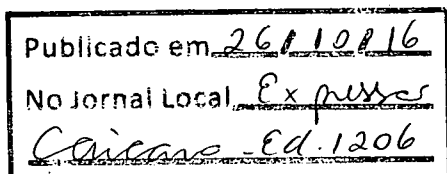 Publicado em 26/10/16
No Jornal Local Expresso
Caiçara - Ed. 1206